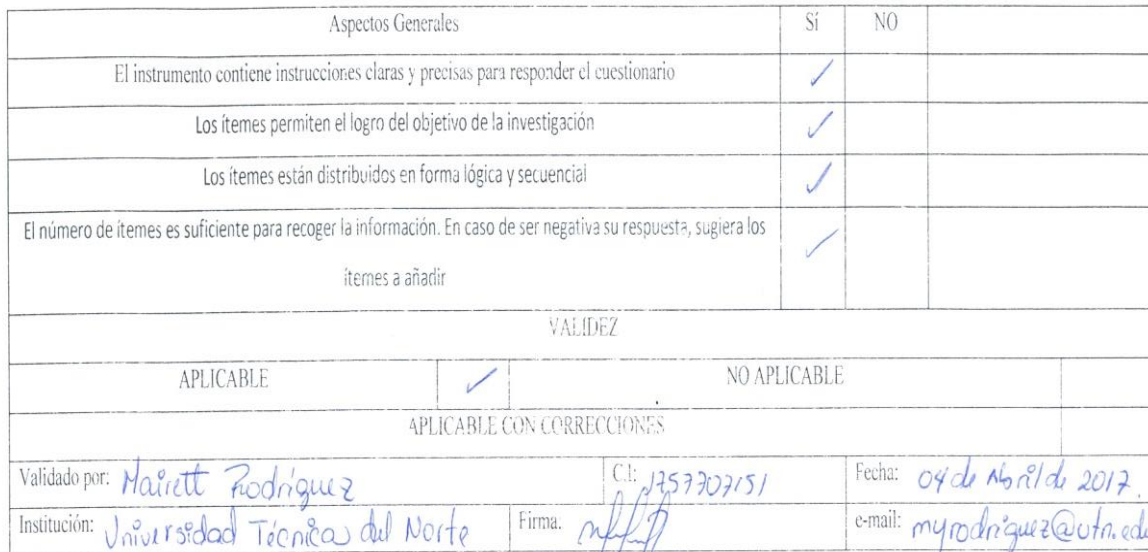 Aspectos Generales Sí NO
El instrumento contiene instrucciones claras y precisas para responder el cuestionario
Los ítemes permiten el logro del objetivo de la investigación
Los ítemes están distribuidos en forma lógica y secuencial
El número de ítemes es suficiente para recoger la información. En caso de ser negativa su respuesta, sugiera los
ítemes a añadir
VALIDEZ
APLICABLE NO APLICABLE
APLICABLE CON CORRECCIONES
Validado por: Mairett Rodríguez C.I: 1757707151 Fecha: 04 de Abril de 2017.
Institución: Universidad Técnica del Norte Firma. e-mail: myrodriguez@utn.edu